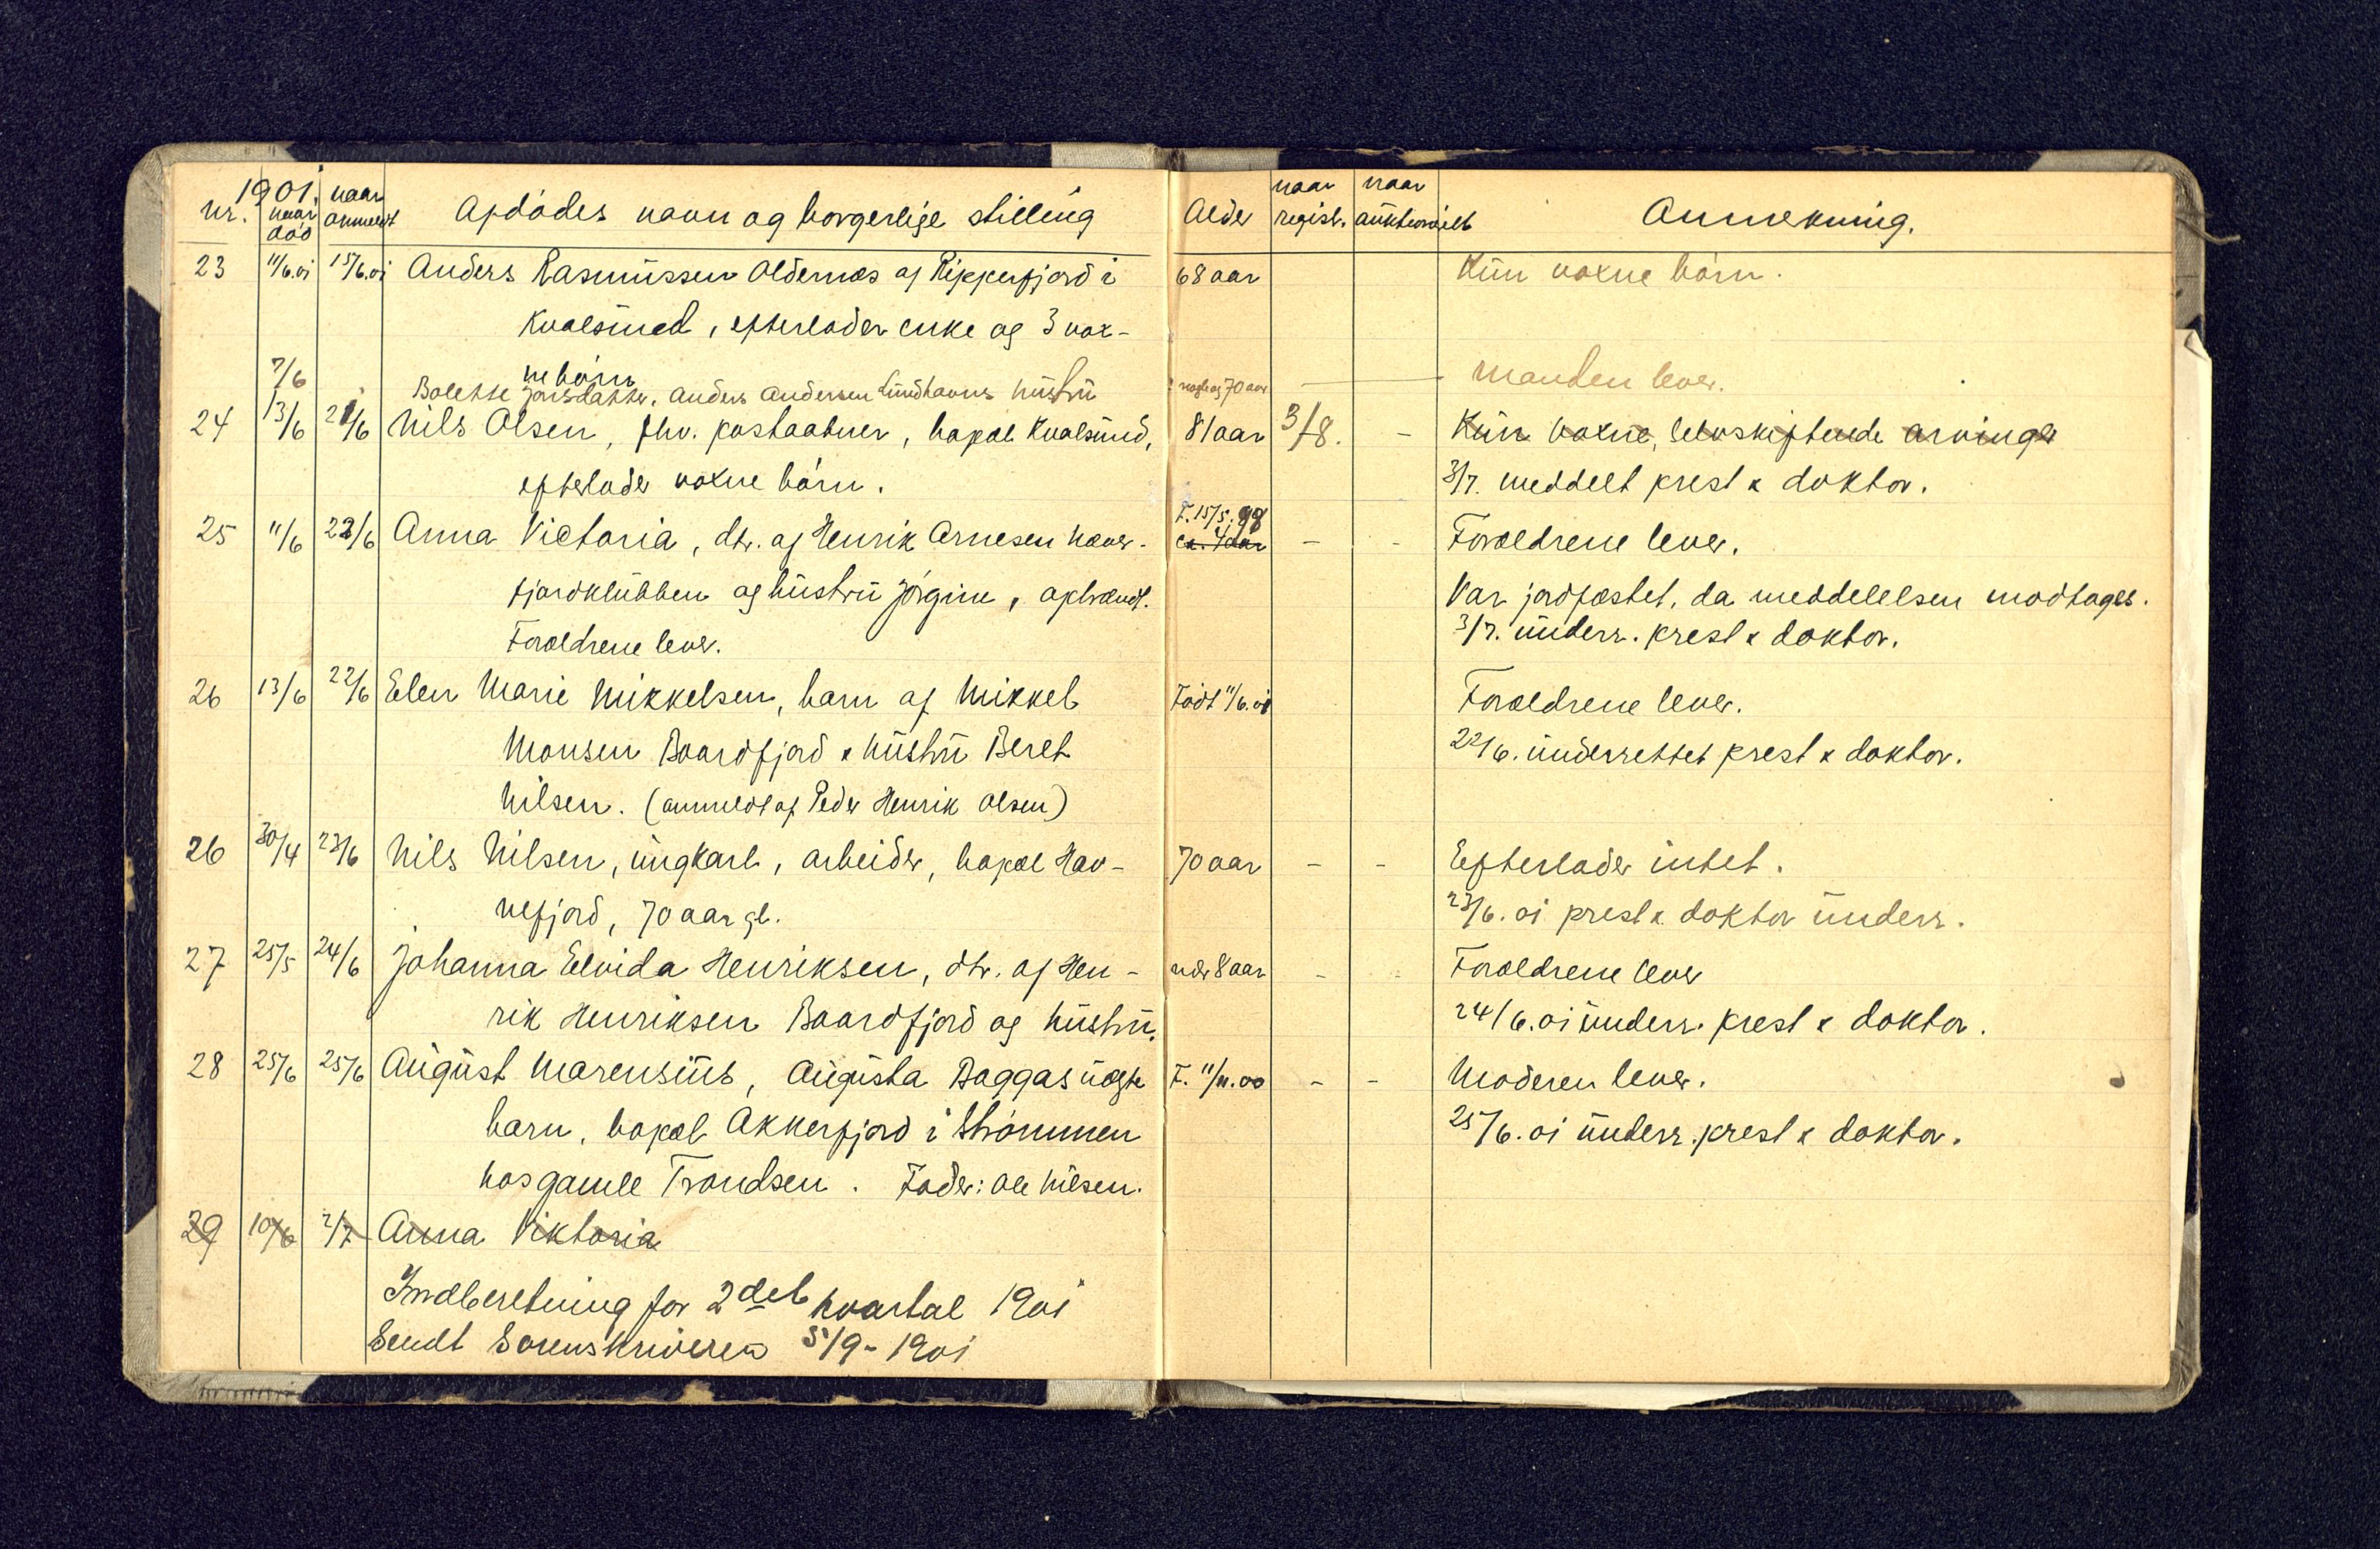 1901.
nr. naar død naar anmeldt Afdødes navn og borgerlige stilling Alder naar regist. naar auktionielt Anmerkning.
23 11/6.01 15/6.01 Anders Rasmussen Oldernæs af Repperfjord i 68 aar Kun voxne børn.
Kvalsund, efterlader enke og 3 vox-
ne børn
7/6 Bolette Jonsdatter, Anders Andersen Lundhavns hustru nogle og 70 aar - Manden lever.
24 13/6 21/6 Nils Olsen, fhv. postaabner, bopæl Kvalsund, 81 aar 3/8. - Kun voxne, selvskiftende arvinger
efterlader voxne børn. 3/7. meddelt prest & doktor.
F. 15/5.98
25 11/6 22/6 Anna Victoria, dtr. af Henrik Arnesen Hover- ca. 4 aar - - Forældrene lever.
fjordklubben og hustru Jørgine, Var jordfæstet, da meddelelsen modtages.
Forældrene lever. 3/7. underr. prest & doktor.
26 13/6 22/6 Elen Marie Mikkelsen, barn af Mikkel Født 11/6.01 Forældrene lever.
Monsen Baardfjord & hustru Beret 22/6. underrettet prest & doktor.
Nilsen. (anmeldt af Peder Henrik Olsen)
26 30/4 23/6 Nils Nilsen, ungkarl, arbeider, bopæl Hav- 70 aar - - Efterlader intet.
nefjord, 70 aar gl. 23/6.01 prest & doktor underr.
27 25/5 24/6 Johanna Elvida Henriksen, dtr. af Hen- nær 8 aar - - Forældrene lever
rik Henriksen Baardfjord og hustru. 24/6.01 underr. prest & doktor.
28 25/6 25/6 August Marensius, Augusta Baggas uægte F. 11/11.00 - - Moderen lever.
barn, bopæl Akkerfjord i Strømmen 25/6.01 underr. prest & doktor.
hos gamle Trondsen. Fader: Ole Nilsen.
29 10/6 2/7 Anna Viktoria
Indberetning for 2det kvartal 1901
Sendt Sorenskriveren 5/9-1901